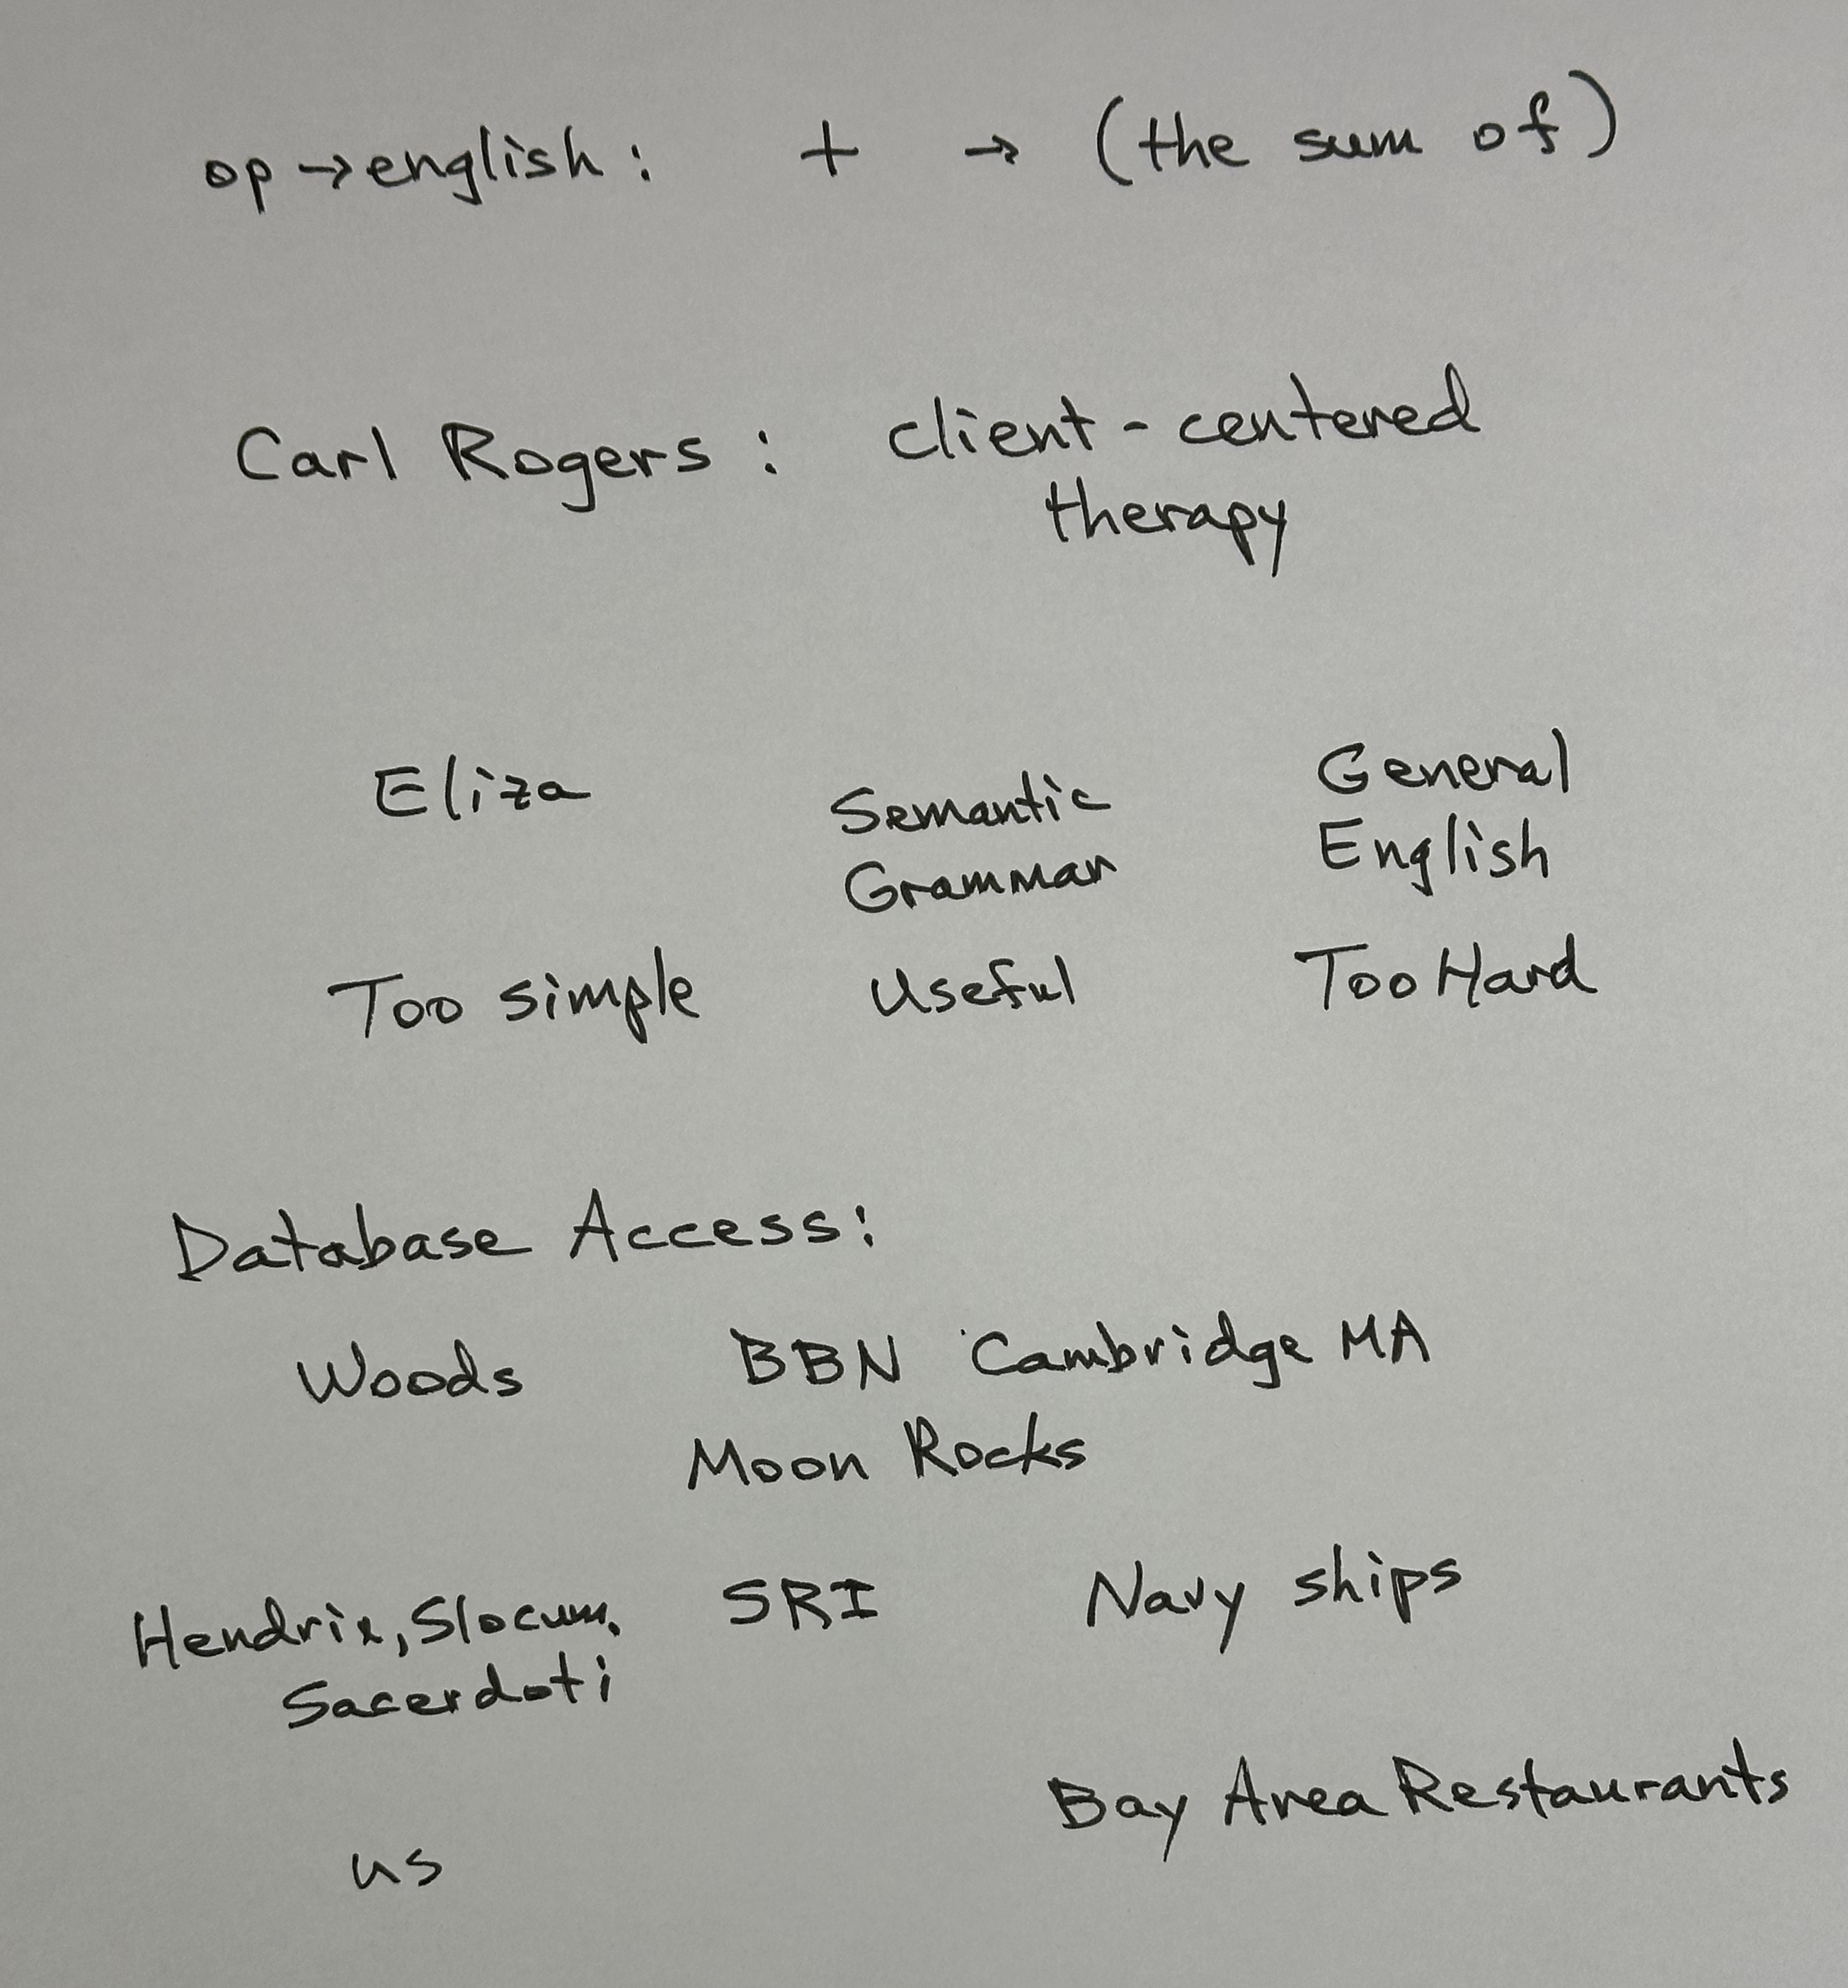 op → english : + → (the sum of)
Carl Rogers : client-centered
therapy
Eliza Semantic Grammar General English
Too simple Useful Too Hard
Database Access:
Woods BBN Cambridge MA
Moon Rocks
Hendrix, Slocum, SRI Navy ships
Sacerdoti
us Bay Area Restaurants